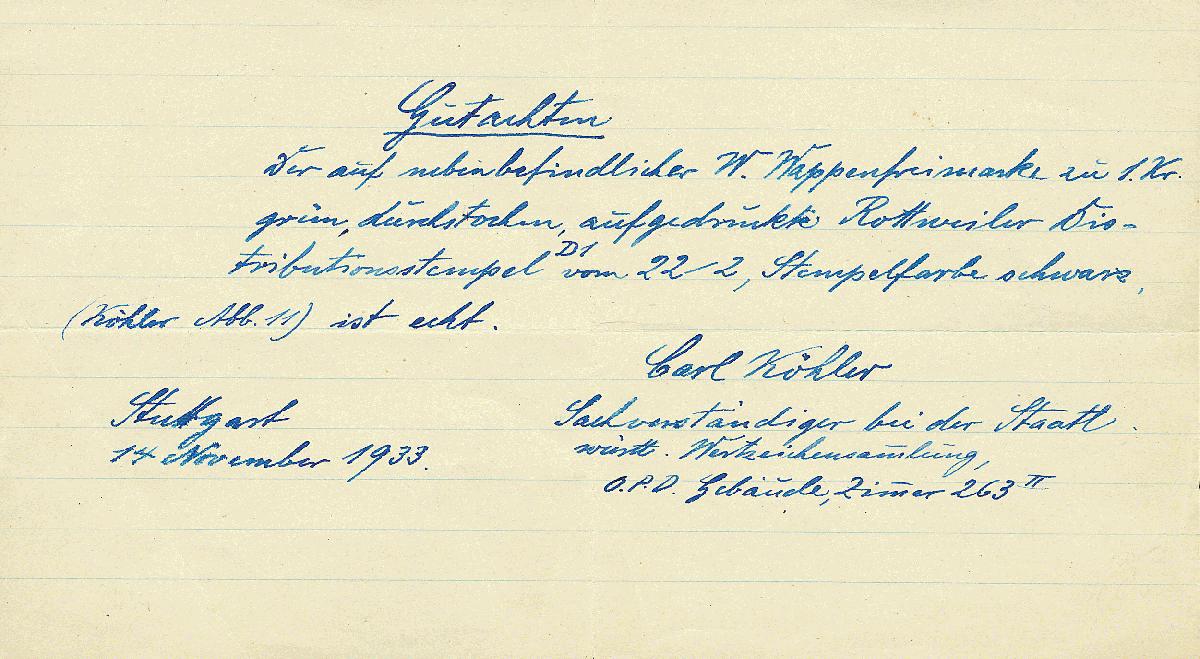 Gutachten
Der auf nebenbefindlicher W. Wappenfreimarke zu 1. Kr.
grün, durchstochen, aufgedruckte Rottweiler Dis-
tributionsstempel D1 vom 22/2, Stempelfarbe schwarz,
(Köhler Abb. 11) ist echt.
Carl Köhler
Stuttgart
14 November 1933.
Sachverständiger bei der Staatl.
württ. Wertzeichensam̅lung,
O.P.D. Gebäude, Zim̅er 263 II